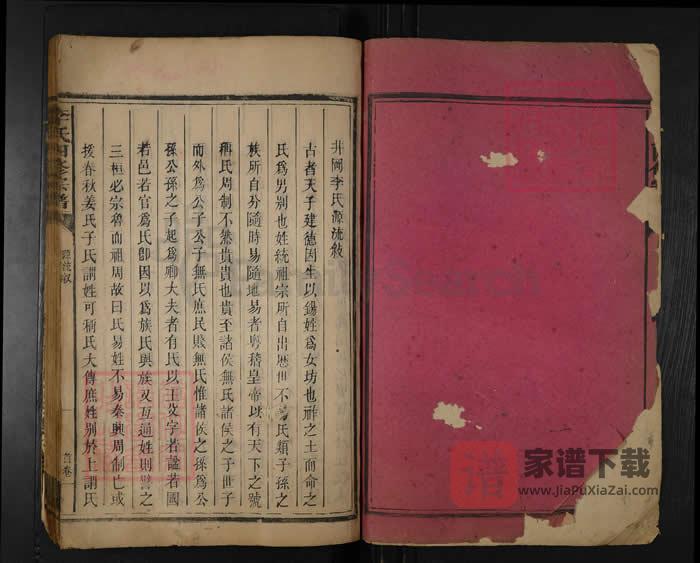 井岡李氏源流敘
古者天子建德因生以錫姓為女坊也胙之土而命之
氏為男別也姓統祖宗所自出歷世不氏類子孫之
族所自分隨時易隨地易者粵稽皇帝以有天下之號
稱氏周制不然貴貴也貴至諸侯無氏諸侯之子世子
而外為公子公子無氏庶民賤無氏惟諸侯之孫為公
孫公孫之子起為卿大夫者有氏以王父字若諡若國
若邑若官為氏即因以為族氏與族又互通姓則譬之
三桓必宗魯而祖周故曰氏易姓不易秦興周制亡或
援春秋姜氏子氏謂姓可稱氏大傳庶姓別於上謂氏
李氏四修宗譜
源流敘
首卷
FamilySearch
譜
家谱下载
www.JiaPuXiaZai.com